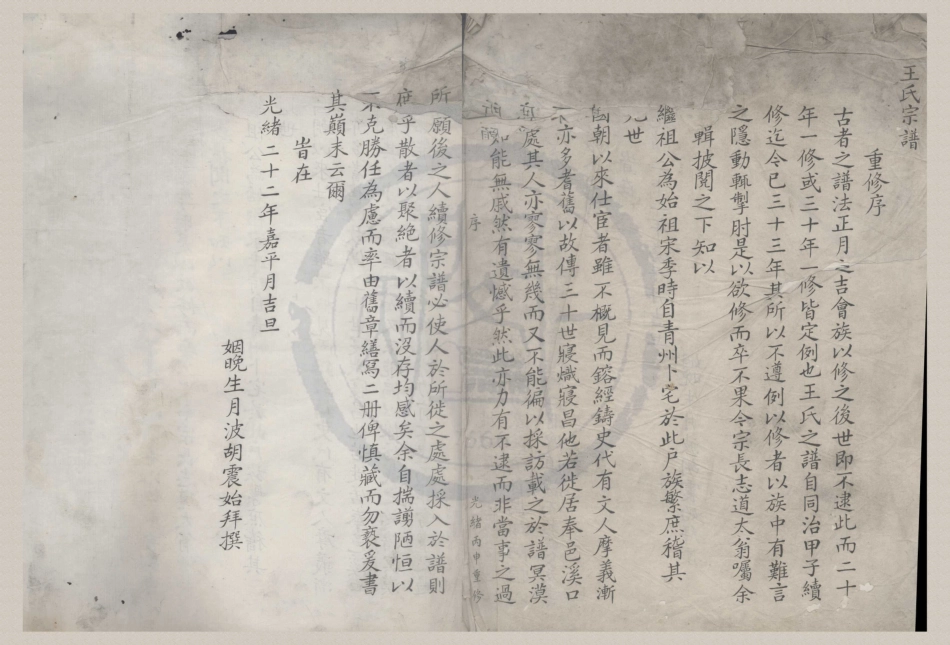 王氏宗譜
重修序
古者之譜法正月之吉會族以修之後世即不逮此而二十
年一修或三十年一修皆定例也王氏之譜自同治甲子續
修迄今已三十三年其所以不遵例以修者以族中有難言
之隱動輒掣肘是以欲修而卒不果今宗長志道太翁囑余
輯披閱之下知以
繼祖公為始祖宋季時自青州卜宅於此戶族繁庶稽其
世
國朝以來仕宦者雖不概見而鎔經鑄史代有文人摩義漸
亦多耆舊以故傳三十世寢熾寢昌他若徙居奉邑溪口
處其人亦寥寥無幾而又不能徧以採訪載之於譜冥漠
能無戚然有遺憾乎然此亦力有不逮而非當事之過
序
光緒丙申重修
所願後之人續修宗譜必使人於所徙之處處採入於譜則
庶乎散者以聚絕者以續而沒存均感矣余自揣謭陋恒以
不克勝任為慮而率由舊章繕寫二册俾慎藏而勿褻爰書
其巔末云爾
旹在
光緒二十二年嘉平月吉旦
姻晚生月波胡震始拜撰